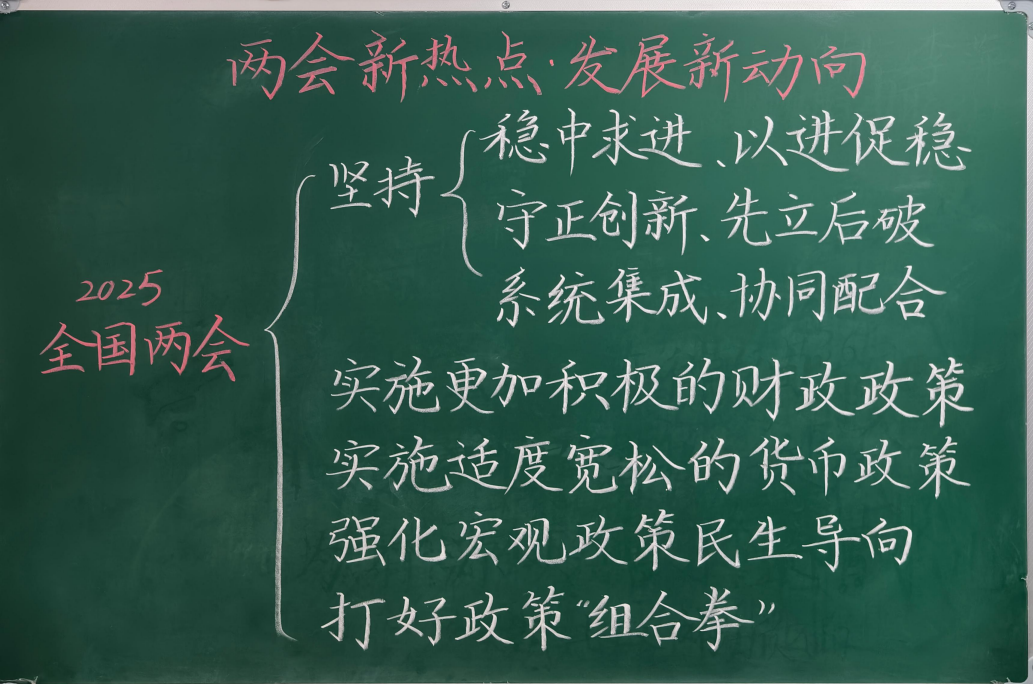 两会新热点·发展新动向
2025
全国两会
坚持
稳中求进、以进促稳
守正创新、先立后破
系统集成、协同配合
实施更加积极的财政政策
实施适度宽松的货币政策
强化宏观政策民生导向
打好政策“组合拳”